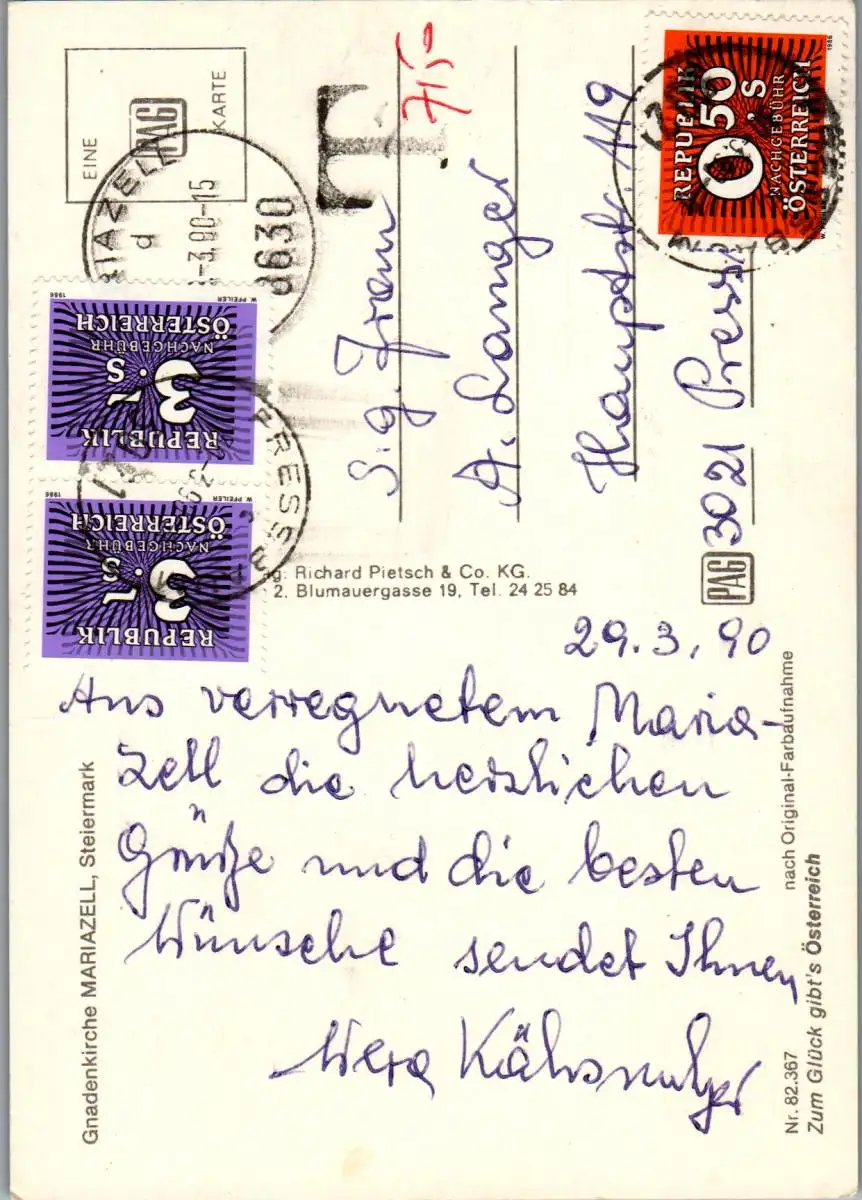 EINE
PAG
KARTE
8630
d
-3.90-15
T
7,5-
REPUBLIK
0.50
S
NACHGEBÜHR
ÖSTERREICH
1986
W. PFEILER
1986
ÖSTERREICH
NACHGEBÜHR
3.- S
REPUBLIK
W. PFEILER
1986
ÖSTERREICH
NACHGEBÜHR
3.- S
REPUBLIK
Frau
A. Langer
Hauptstr. 119
3021 Press
PAG
Richard Pietsch & Co. KG.
2. Blumauergasse 19, Tel. 24 25 84
29.3.90
Aus verregnetem Maria-
zell die herzlichen
Grüße und die besten
Wünsche sendet Ihnen
Wera
Gnadenkirche MARIAZELL, Steiermark
nach Original-Farbaufnahme
Nr. 82.367
Zum Glück gibt's Österreich